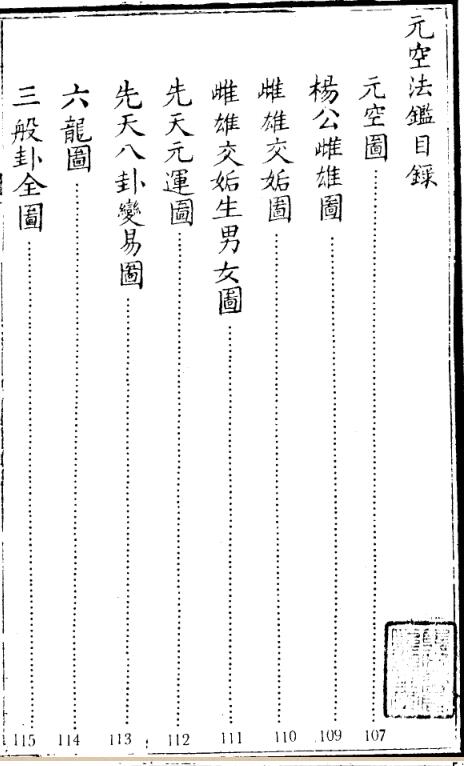 元空法鑑目錄
元空圖 107
楊公雌雄圖 109
雌雄交姤圖 110
雌雄交姤生男女圖 111
先天元運圖 112
先天八卦變易圖 113
六龍圖 114
三般卦全圖 115